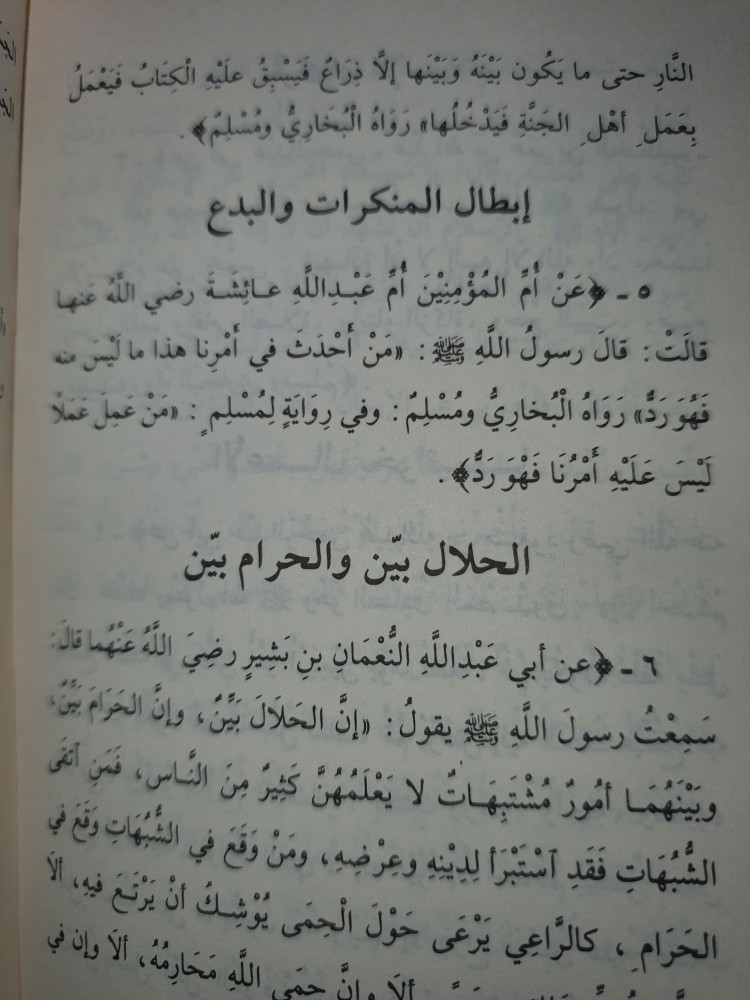 النَّارِ حتى ما يَكُون بَيْنَهُ وَبَيْنَها إلَّا ذِرَاعٌ فَيَسْبِقُ علَيْهِ الْكِتَابُ فَيَعْمَلُ
بِعَمَلِ أهْلِ الجَنَّةِ فَيَدْخُلُها» رَوَاهُ الْبُخَارِيُّ ومُسْلِمٌ﴾.
إبطال المنكرات والبدع
٥ ـ ﴿عَنْ أُمِّ المُؤْمِنِيْنَ أُمِّ عَبْدِاللَّهِ عـائِشَةَ رضي اللَّهُ عَنها
قالَتْ: قالَ رسولُ اللَّهِ ﷺ: «مَنْ أَحْدَثَ في أَمْرِنا هذا ما لَيْسَ منه
فَهُوَ رَدٌّ» رَوَاهُ الْبُخاريُّ ومُسْلِمٌ: وفي رِوَايَةٍ لِمُسْلِمٍ: «مَنْ عَمِلَ عَمَلًا
لَيْسَ عَلَيْهِ أَمْرُنَا فَهْوَ رَدٌّ﴾.
الحلال بيّن والحرام بيّن
٦ ـ ﴿عن أبي عَبْدِاللَّهِ النُّعْمَانِ بنِ بَشِيرٍ رضِيَ اللَّهُ عَنْهُما قالَ:
سَمِعْتُ رسولَ اللَّهِ ﷺ يقولُ: «إنَّ الحَلَالَ بَيِّنٌ، وإنَّ الحَرَامَ بَيِّنٌ،
وبَيْنَهُمَـا أمُورٌ مُشْتَبِهَـاتٌ لا يَعْلَمُهُنَّ كَثِيرٌ مِنَ النَّـاس، فَمَنِ آتَّقَى
الشُّبُهَاتِ فَقَدِ آسْتَبْرَأ لِدِيْنِهِ وعِرْضِهِ، ومَنْ وَقَعَ في الشُّبُهَاتِ وَقَعَ في
الحَرَامِ، كالرَّاعِي يَرْعَى حَوْلَ الْحِمَى يُوْشِـكُ أنْ يَرْتَـعَ فيهِ، ألَا
ألَا وإنَّ حِمَى اللَّهِ مَحَارِمُهُ، ألَا وإن في